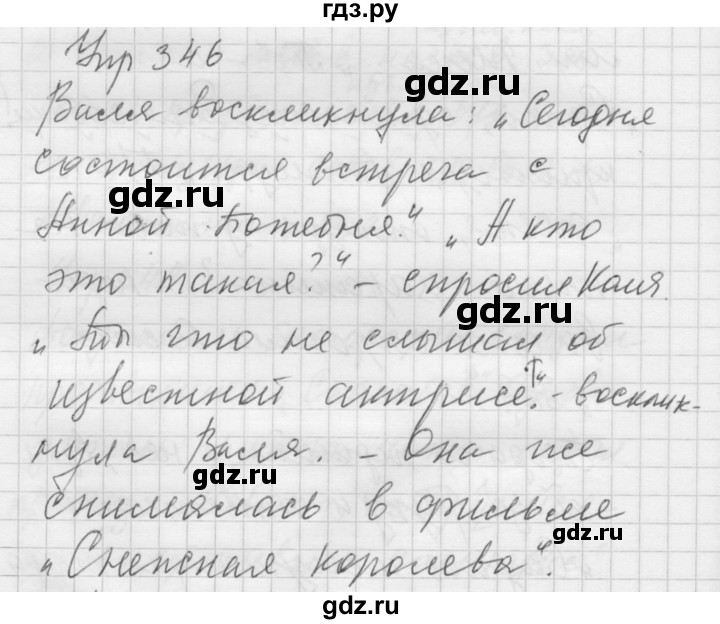 гдз.ру
Упр 346
Валя воскликнула: „Сегодня
состоится встреча с
Анной Потебня." „А кто
это такая?" – спросил Коля.
„Ты что не слышал об
известной актрисе?" – восклик-
нула Валя. – Она же
снималась в фильме
„Снежная королева".
gdz.ru
gdz.ru
gdz.ru
gdz.ru
gdz.ru
gdz.ru